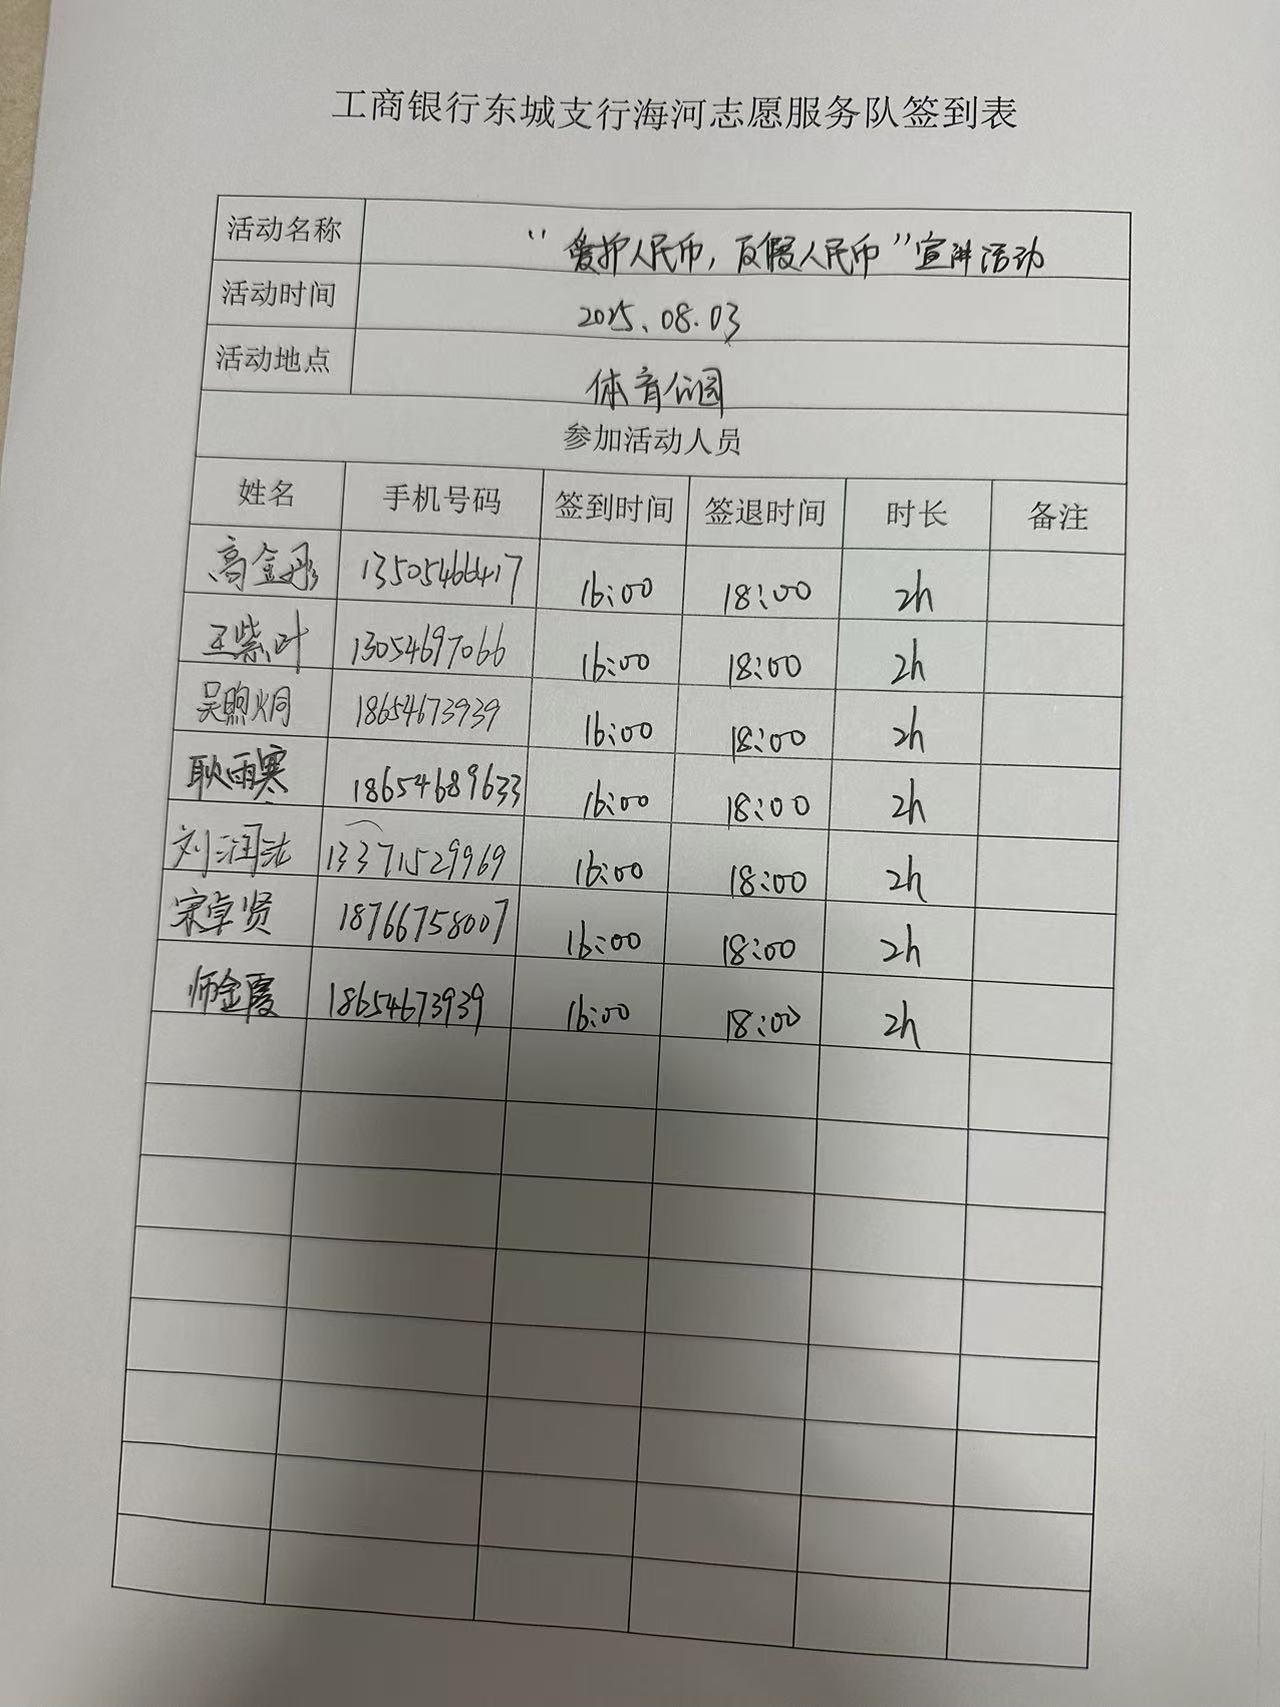 工商银行东城支行海河志愿服务队签到表
活动名称 “爱护人民币，反假人民币”宣讲活动
活动时间 2025.08.03
活动地点 体育公园
参加活动人员
姓名 手机号码 签到时间 签退时间 时长 备注
高金彤 13505466417 16:00 18:00 2h
王紫叶 13054697066 16:00 18:00 2h
吴煦炯 18654673939 16:00 18:00 2h
耿雨寒 18654689633 16:00 18:00 2h
刘润 13371529969 16:00 18:00 2h
宋卓贤 18766758007 16:00 18:00 2h
师金霞 18654673939 16:00 18:00 2h